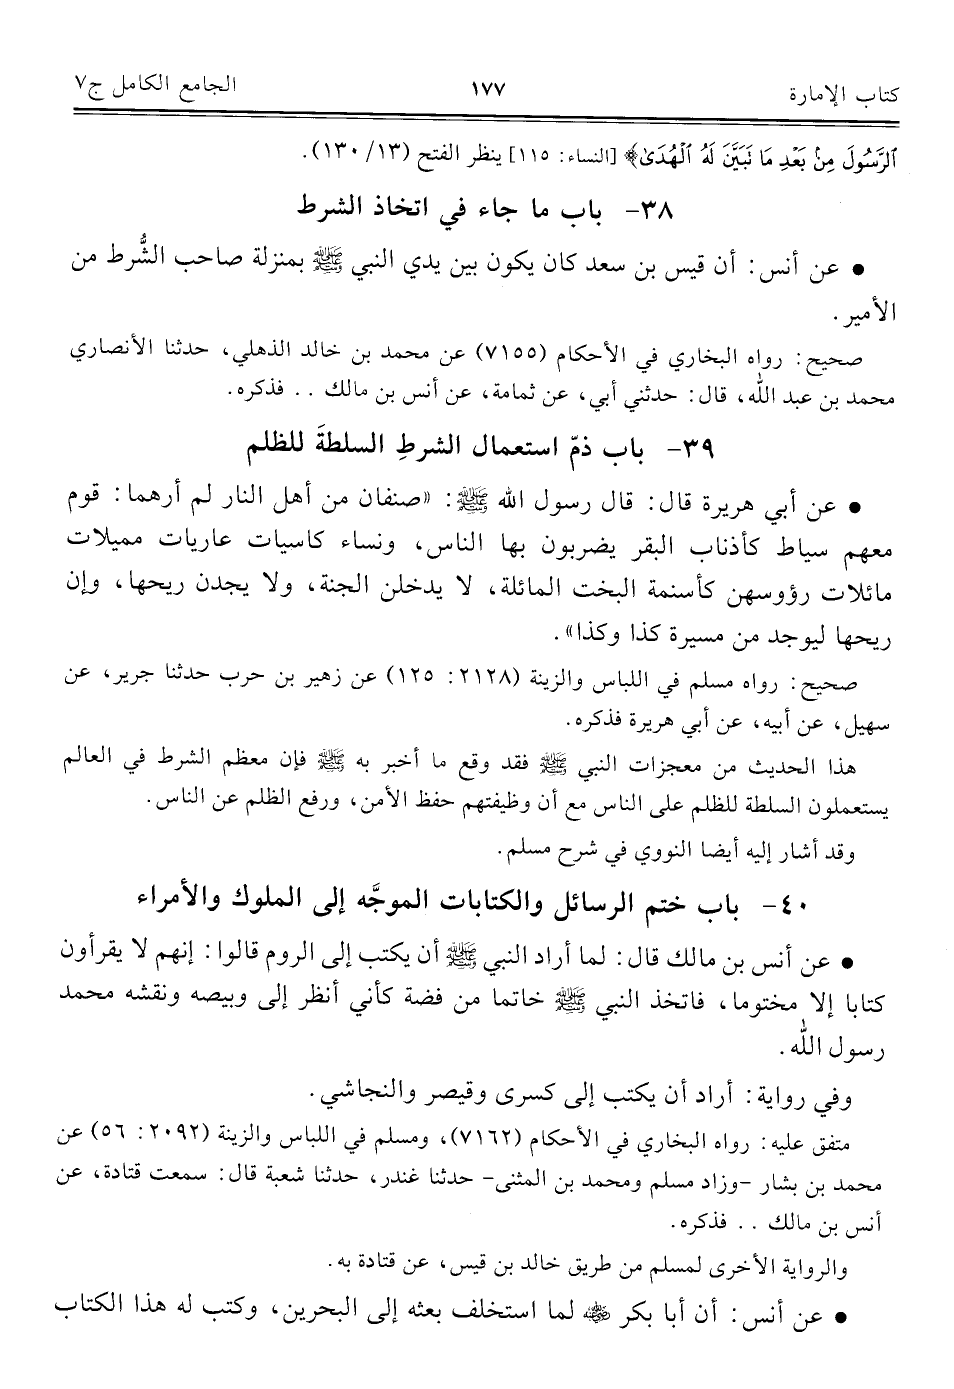 كتاب الإمارة ١٧٧ الجامع الكامل ج٧
ٱلرَّسُولَ مِنۢ بَعْدِ مَا تَبَيَّنَ لَهُ ٱلْهُدَىٰ﴾ [النساء: ١١٥] ينظر الفتح (١٣/ ١٣٠).
٣٨- باب ما جاء في اتخاذ الشرط
• عن أنس: أن قيس بن سعد كان يكون بين يدي النبي ﷺ بمنزلة صاحب الشُّرط من
الأمير.
صحيح: رواه البخاري في الأحكام (٧١٥٥) عن محمد بن خالد الذهلي، حدثنا الأنصاري
محمد بن عبد الله، قال: حدثني أبي، عن ثمامة، عن أنس بن مالك .. فذكره.
٣٩- باب ذمّ استعمال الشرطِ السلطةَ للظلم
• عن أبي هريرة قال: قال رسول الله ﷺ: «صنفان من أهل النار لم أرهما: قوم
معهم سياط كأذناب البقر يضربون بها الناس، ونساء كاسيات عاريات مميلات
مائلات رؤوسهن كأسنمة البخت المائلة، لا يدخلن الجنة، ولا يجدن ريحها، وإن
ريحها ليوجد من مسيرة كذا وكذا».
صحيح: رواه مسلم في اللباس والزينة (٢١٢٨: ١٢٥) عن زهير بن حرب حدثنا جرير، عن
سهيل، عن أبيه، عن أبي هريرة فذكره.
هذا الحديث من معجزات النبي ﷺ فقد وقع ما أخبر به ﷺ فإن معظم الشرط في العالم
يستعملون السلطة للظلم على الناس مع أن وظيفتهم حفظ الأمن، ورفع الظلم عن الناس.
وقد أشار إليه أيضا النووي في شرح مسلم.
٤٠- باب ختم الرسائل والكتابات الموجَّه إلى الملوك والأمراء
• عن أنس بن مالك قال: لما أراد النبي ﷺ أن يكتب إلى الروم قالوا: إنهم لا يقرأون
كتابا إلا مختوما، فاتخذ النبي ﷺ خاتما من فضة كأني أنظر إلى وبيصه ونقشه محمد
رسول الله.
وفي رواية: أراد أن يكتب إلى كسرى وقيصر والنجاشي.
متفق عليه: رواه البخاري في الأحكام (٧١٦٢)، ومسلم في اللباس والزينة (٢٠٩٢: ٥٦) عن
محمد بن بشار -وزاد مسلم ومحمد بن المثنى- حدثنا غندر، حدثنا شعبة قال: سمعت قتادة، عن
أنس بن مالك .. فذكره.
والرواية الأخرى لمسلم من طريق خالد بن قيس، عن قتادة به.
• عن أنس: أن أبا بكر رضي الله عنه لما استخلف بعثه إلى البحرين، وكتب له هذا الكتاب